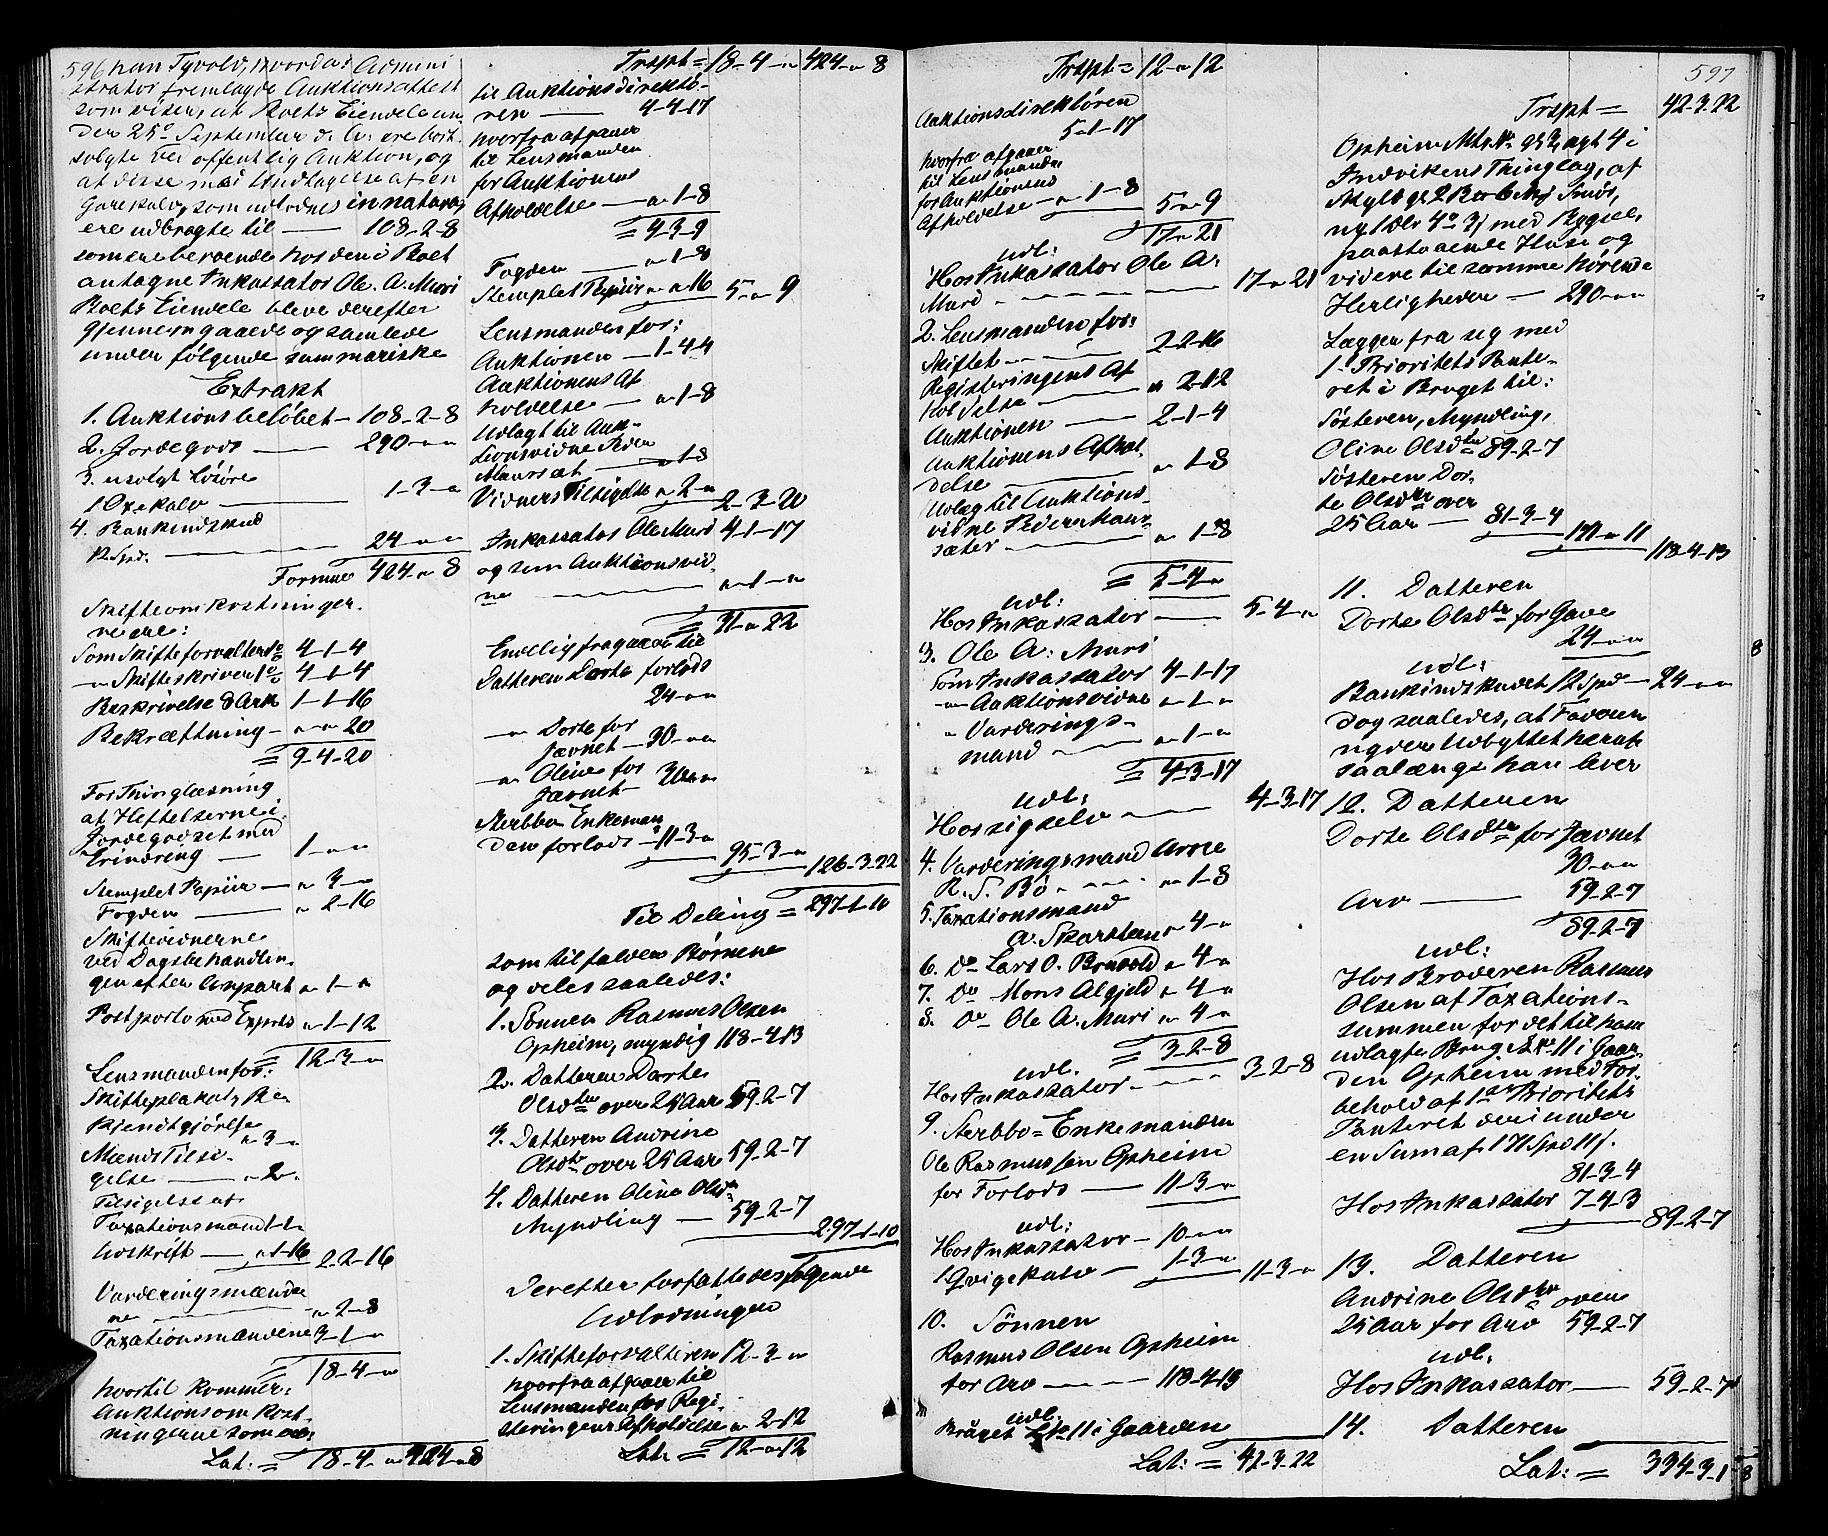 596 han Tyvold, hvorda: Admini
strator fremlagde Auktionsattest
som viser, at Boets Eiendele un
der 25de September d. A. ere bort
solgte ved offentlig Auktion, og
at disse med Undtagelse af en
Gavekalv, som udlodnes in natura,
ere udbragte til — 108-2-8
som ere beroende hos den i Boet
antagne Inkassator Ole A. Muri
Boets Eiendele bleve derefter
gjennemgaaede og samlede
under følgende summariske
Extrakt
1. Auktionsbeløbet — 108-2-8
2. Jordegods — 290-"-"
3. usolgt Løsøre
1 Oxekalv — 1-3-"
4. Bankindskud
12 Spd. — 24-"-"
Formue 424-"-8
Skifteomkostninger
nedre:
Som Skifteforvalter 1% 4-1-4
-"- Skifteskriver 1% 4-1-4
Beskrivelse 8 Ark 1-1-16
Bekræftning - "-"-20
= 9-4-20
For Thinglæsning
af Heftelserne i
Jordegodset med
Erindring — 1-"-"
Stemplet Papiir — "-3-"
Fogden — "-2-16
Skiftevidnerne
ved Dagsbehandlin-
gen efter Conpart "-1-"
Postporto med Exprds "-1-12
= 12-3-"
Lensmanden for:
Skifteplakat, Be
kjendtgjørelse "-3-"
Mænds Tilsi-
gelse — "-2-
Tilsigelse af
Taxationsmænd 1-1-
Avskrift — "-1-16 2-2-16
Varderingsmænde
ne — "-2-8
Taxationsmændene 3-1-"
= 18-4-"
hvortil kommer:
Auktionsomkost-
ningerne som er:
Lat: = 18-4-" 424-"-8
Trspt = 18-4-" 424-"-8
til Auktionsdirektø-
ren — 4-4-17
hvorfra afgaaer
til Lensmanden
for Auktionens
Afholdelse — "-1-8
= 4-3-9
Fogden — "-1-8
Stemplet Papiir "-"-16 5-"-9
Lensmanden for:
Auktionen — 1-4-4
Auktionens Af
holdelse — "-1-8
Udlagt til Auk-
tionsvidne Peder
Maursæt — "-1-8
Vidners Tilsigelse "-2-" 2-3-20
Inkassator Ole Muri 4-1-17
og som Auktionsvid
ne — "-1-"
= 31-"-22
Endelig fragaaer til
Datteren Dorte forlods
24-"-"
-"- Dorte for
Jævnet — 30-"-"
-"- Oline for
Jævnet — 30-"-"
Sterbbo Enkeman
den forlods — 11-3-"
95-3-" 126-3-22
Til Deling = 297-1-10
som tilfalder Børnene
og deles saaledes:
1. Sønnen Rasmus Olsen
Opheim, myndig 118-4-13
2. Datteren Dorte
Olsdtr over 25 Aar 59-2-7
3. Datteren Andrine
Olsdtr over 25 Aar 59-2-7
4. Datteren Oline Olsdtr
Myndling — 59-2-7
297-1-10
Derefter forfattedes følgende
Udlodningen
1. Skifteforvalteren 12-3-"
hvorfra afgaaer til
Lensmanden for Regi-
steringens Afholdelse "-2-12
Lat. = 12-"-12
Trspt = 12-"-12
Auktionsdirektøren
5-1-17
hvorfra afgaaer
til Lensmanden
for Auktionens
Afholdelse — "-1-8 5-"-9
= 17-"-21
udl:
Hos Inkassator Ole A.
Muri — 17-"-21
2. Lensmanden for:
Skiftet — 2-2-16
Registeringens Af
holdelse — "-2-12
Auktionen — 2-1-4
Auktionens Afhol
delse — "-1-8
Udlæg til Auktions-
vidne Peder Maur-
sæter — "-1-8
= 5-4-"
udl:
Hos Inkassator — 5-4-"
3. Ole A. Muri
Som Inkassator 4-1-17
-"- Auktionsvidne "-1-"
" Varderings-
mand — "-1-"
= 4-3-17
udl:
Hos sig selv — 4-3-17
4. Varderingsmand Arne
R. S. Bø — "-1-8
5. Taxationsmand
A. Skarstein "-4-"
6. Do Lars O. Bruvold "-4-"
7. Do Mons Algjeld "-4-"
8. Do Ole A. Muri "-4-"
= 3-2-8
udl.
Hos Inkassator — 3-2-8
9. Sterbbo=Enkemanden
Ole Rasmussen Opheim
for Forlods — 11-3-"
udl:
Hos Inkassator — 10-"-"
1 Qvigekalv — 1-3-" 11-3-"
10. Sønnen
Rasmus Olsen Opheim
for Arv — 118-4-13
udl:
Bruget Lno 11 i Gaarden
Lat: = 42-3-22
597
Trspt = 42-3-22
Opheim Mtr. No 95, nyt 4 i
Indvikens Thinglag, af
Skyld gl 2 Pd 6 Mrk Smør,
ny 1 Dlr 4 o 3 s med Bygsel,
paastaaende Huse og
videre til samme hørende
Herligheder — 290-"-"
Lægger fra sig med
1. Prioritets Pante-
ret i Bruget til:
Søsteren, Myndling,
Oline Olsdtr 89-2-7
Søsteren Dor-
te Olsdtr over
25 Aar — 81-3-4
171-"-11
118-4-13
11. Datteren
Dorte Olsdtr for Gave
24-"-"
udl:
Bankindskudet 12 Spd — 24-"-"
dog saaledes, at Faderen
nyder Udbyttet heraf
saalænge han lever
12. Datteren
Dorte Olsdtr for Jævnet
30-"-"
Arv — 59-2-7
89-2-7
udl:
Hos Broderen Rasmus
Olsen af Taxations-
summen for det til ham
udlagte Brug Lno 11 i Gaar
den Opheim med For-
behold af 1ste Prioritets
Panteret deri under
en Sum af 171 Spd 11 s.
81-3-4
Hos Inkassator 7-4-3
89-2-7
13. Datteren
Andrine Olsdtr over
25 Aar for Arv 59-2-7
udl.
Hos Inkassator — 59-2-7
14. Datteren
Lat: = 334-3-1
8
8